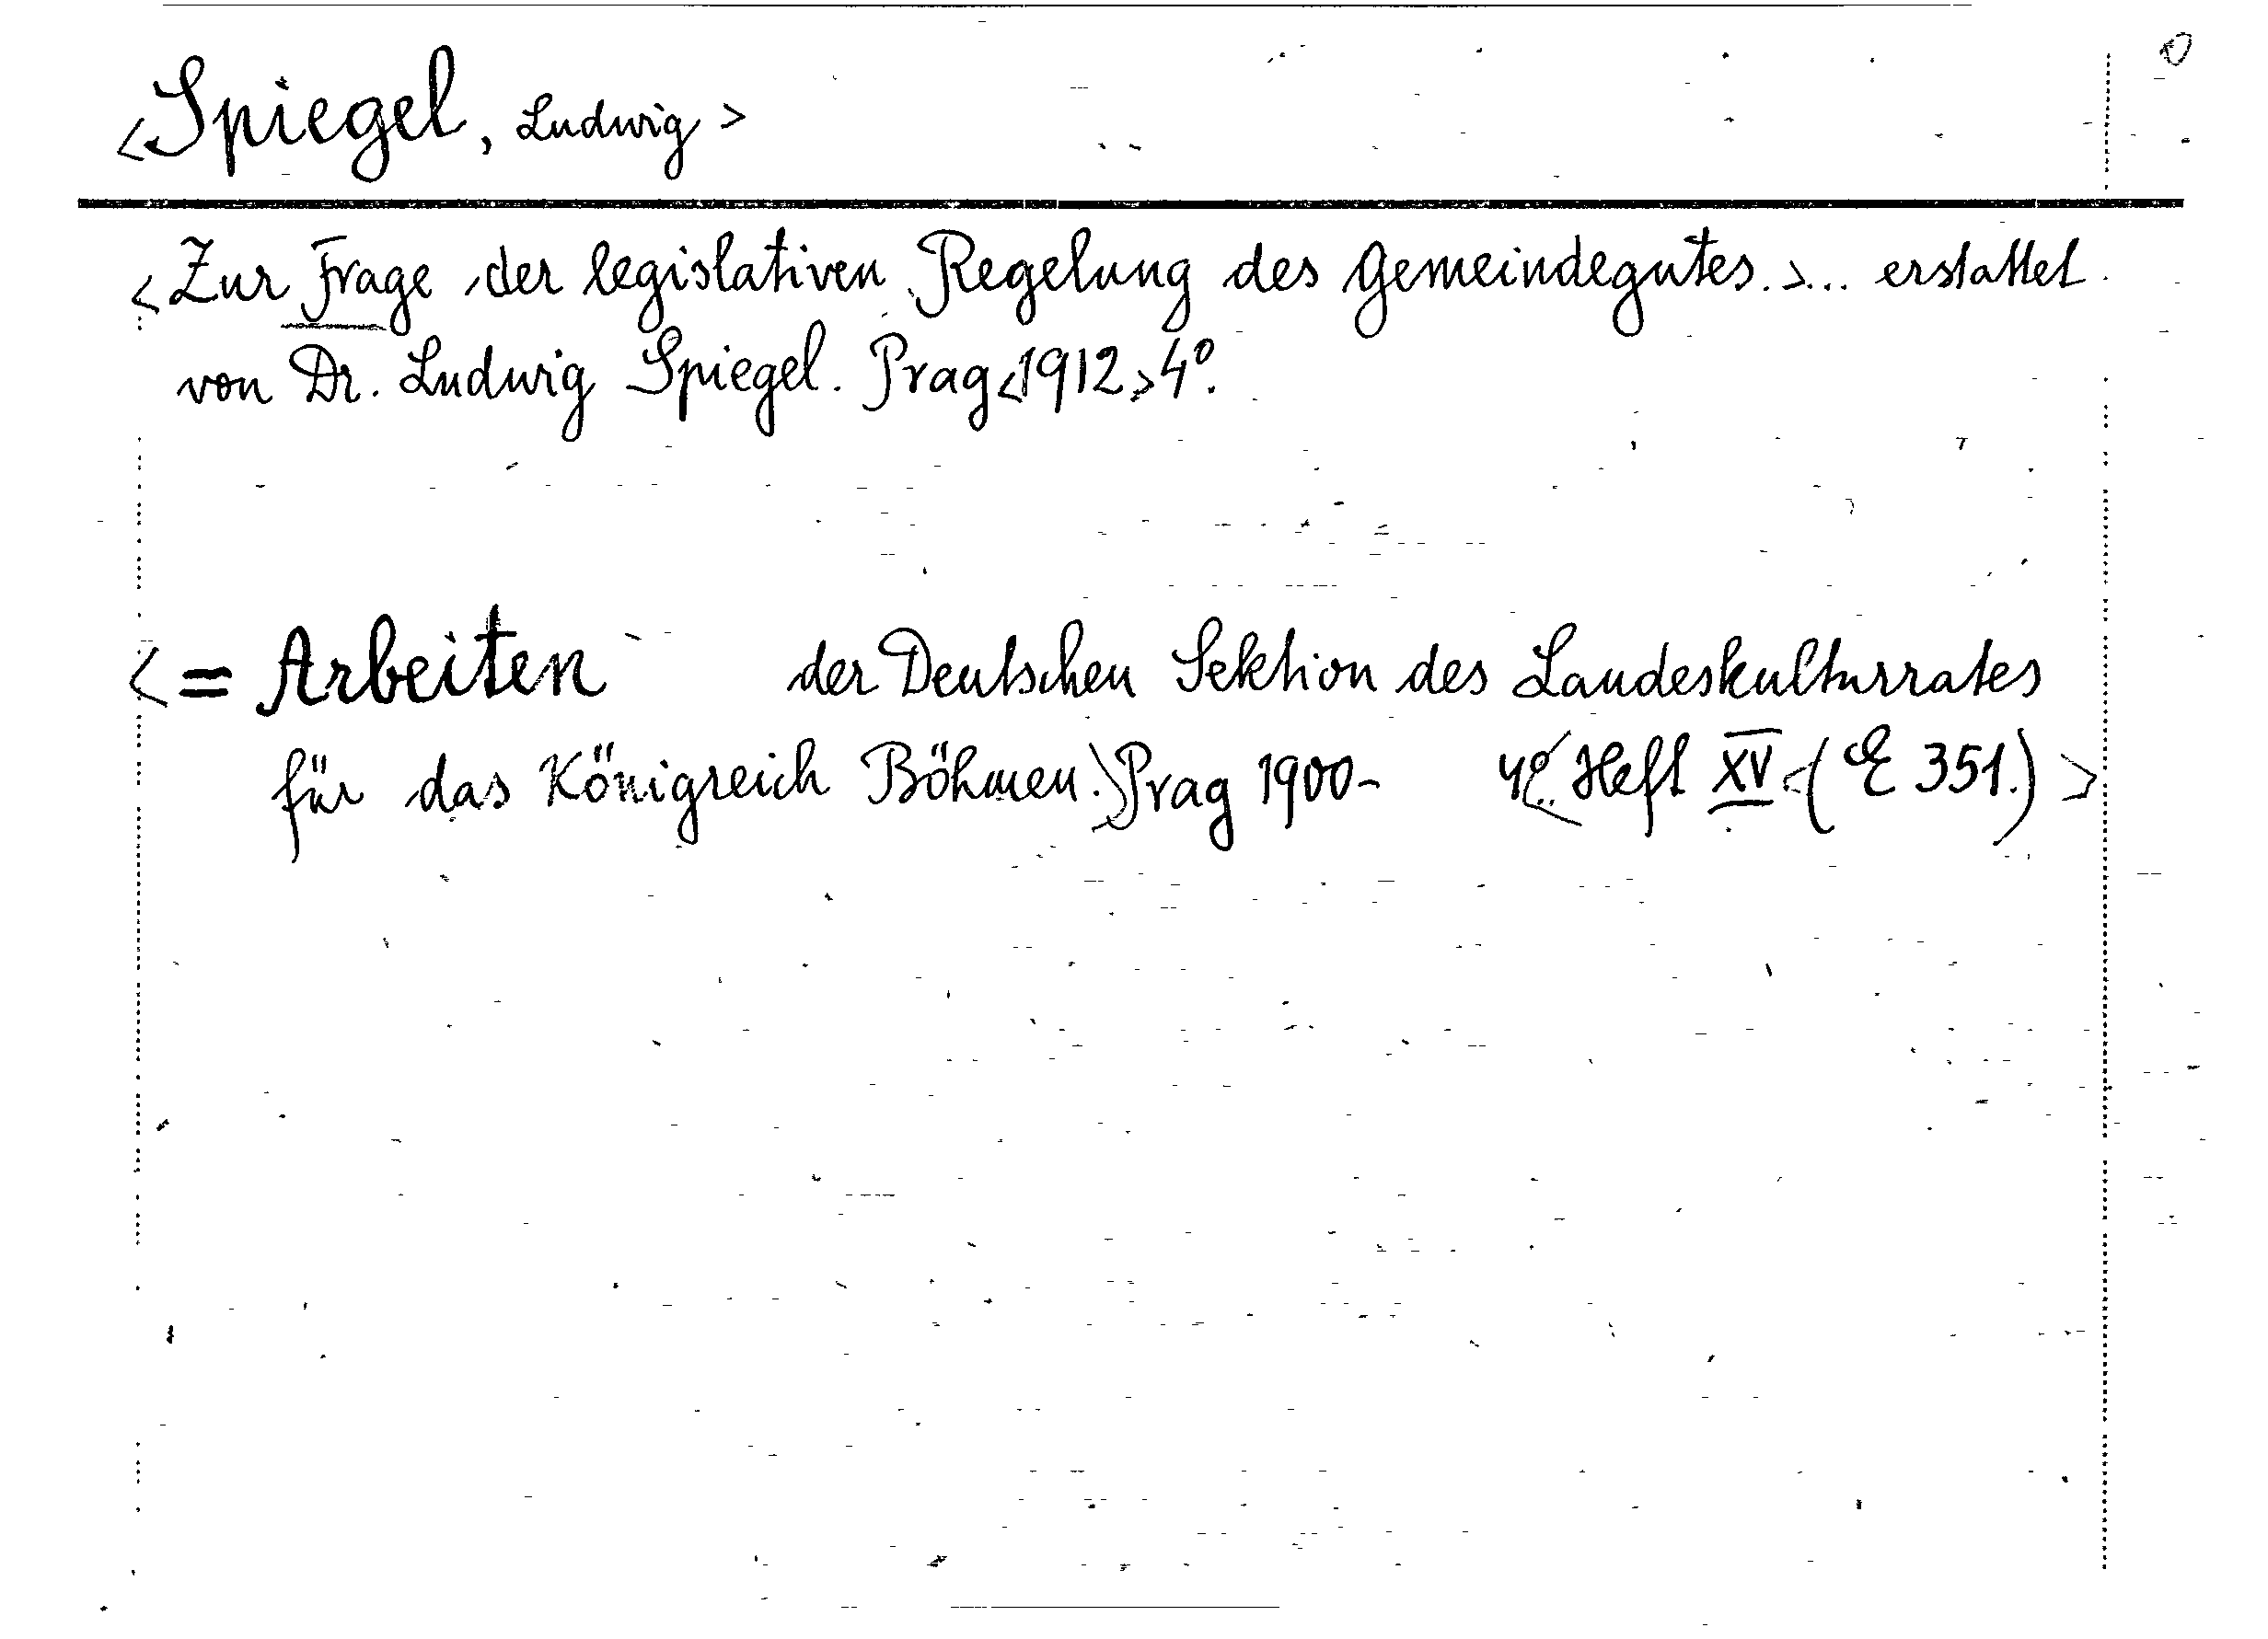 <Spiegel, Ludwig>
<Zur Frage der legislativen Regelung des Gemeindegutes.>... erstattet
von Dr. Ludwig Spiegel. Prag<1912>4º.
<= Arbeiten der Deutschen Sektion des Landeskulturrates
für das Königreich Böhmen.>Prag 1900- 4º.<.. Heft XV <(E 351.)>